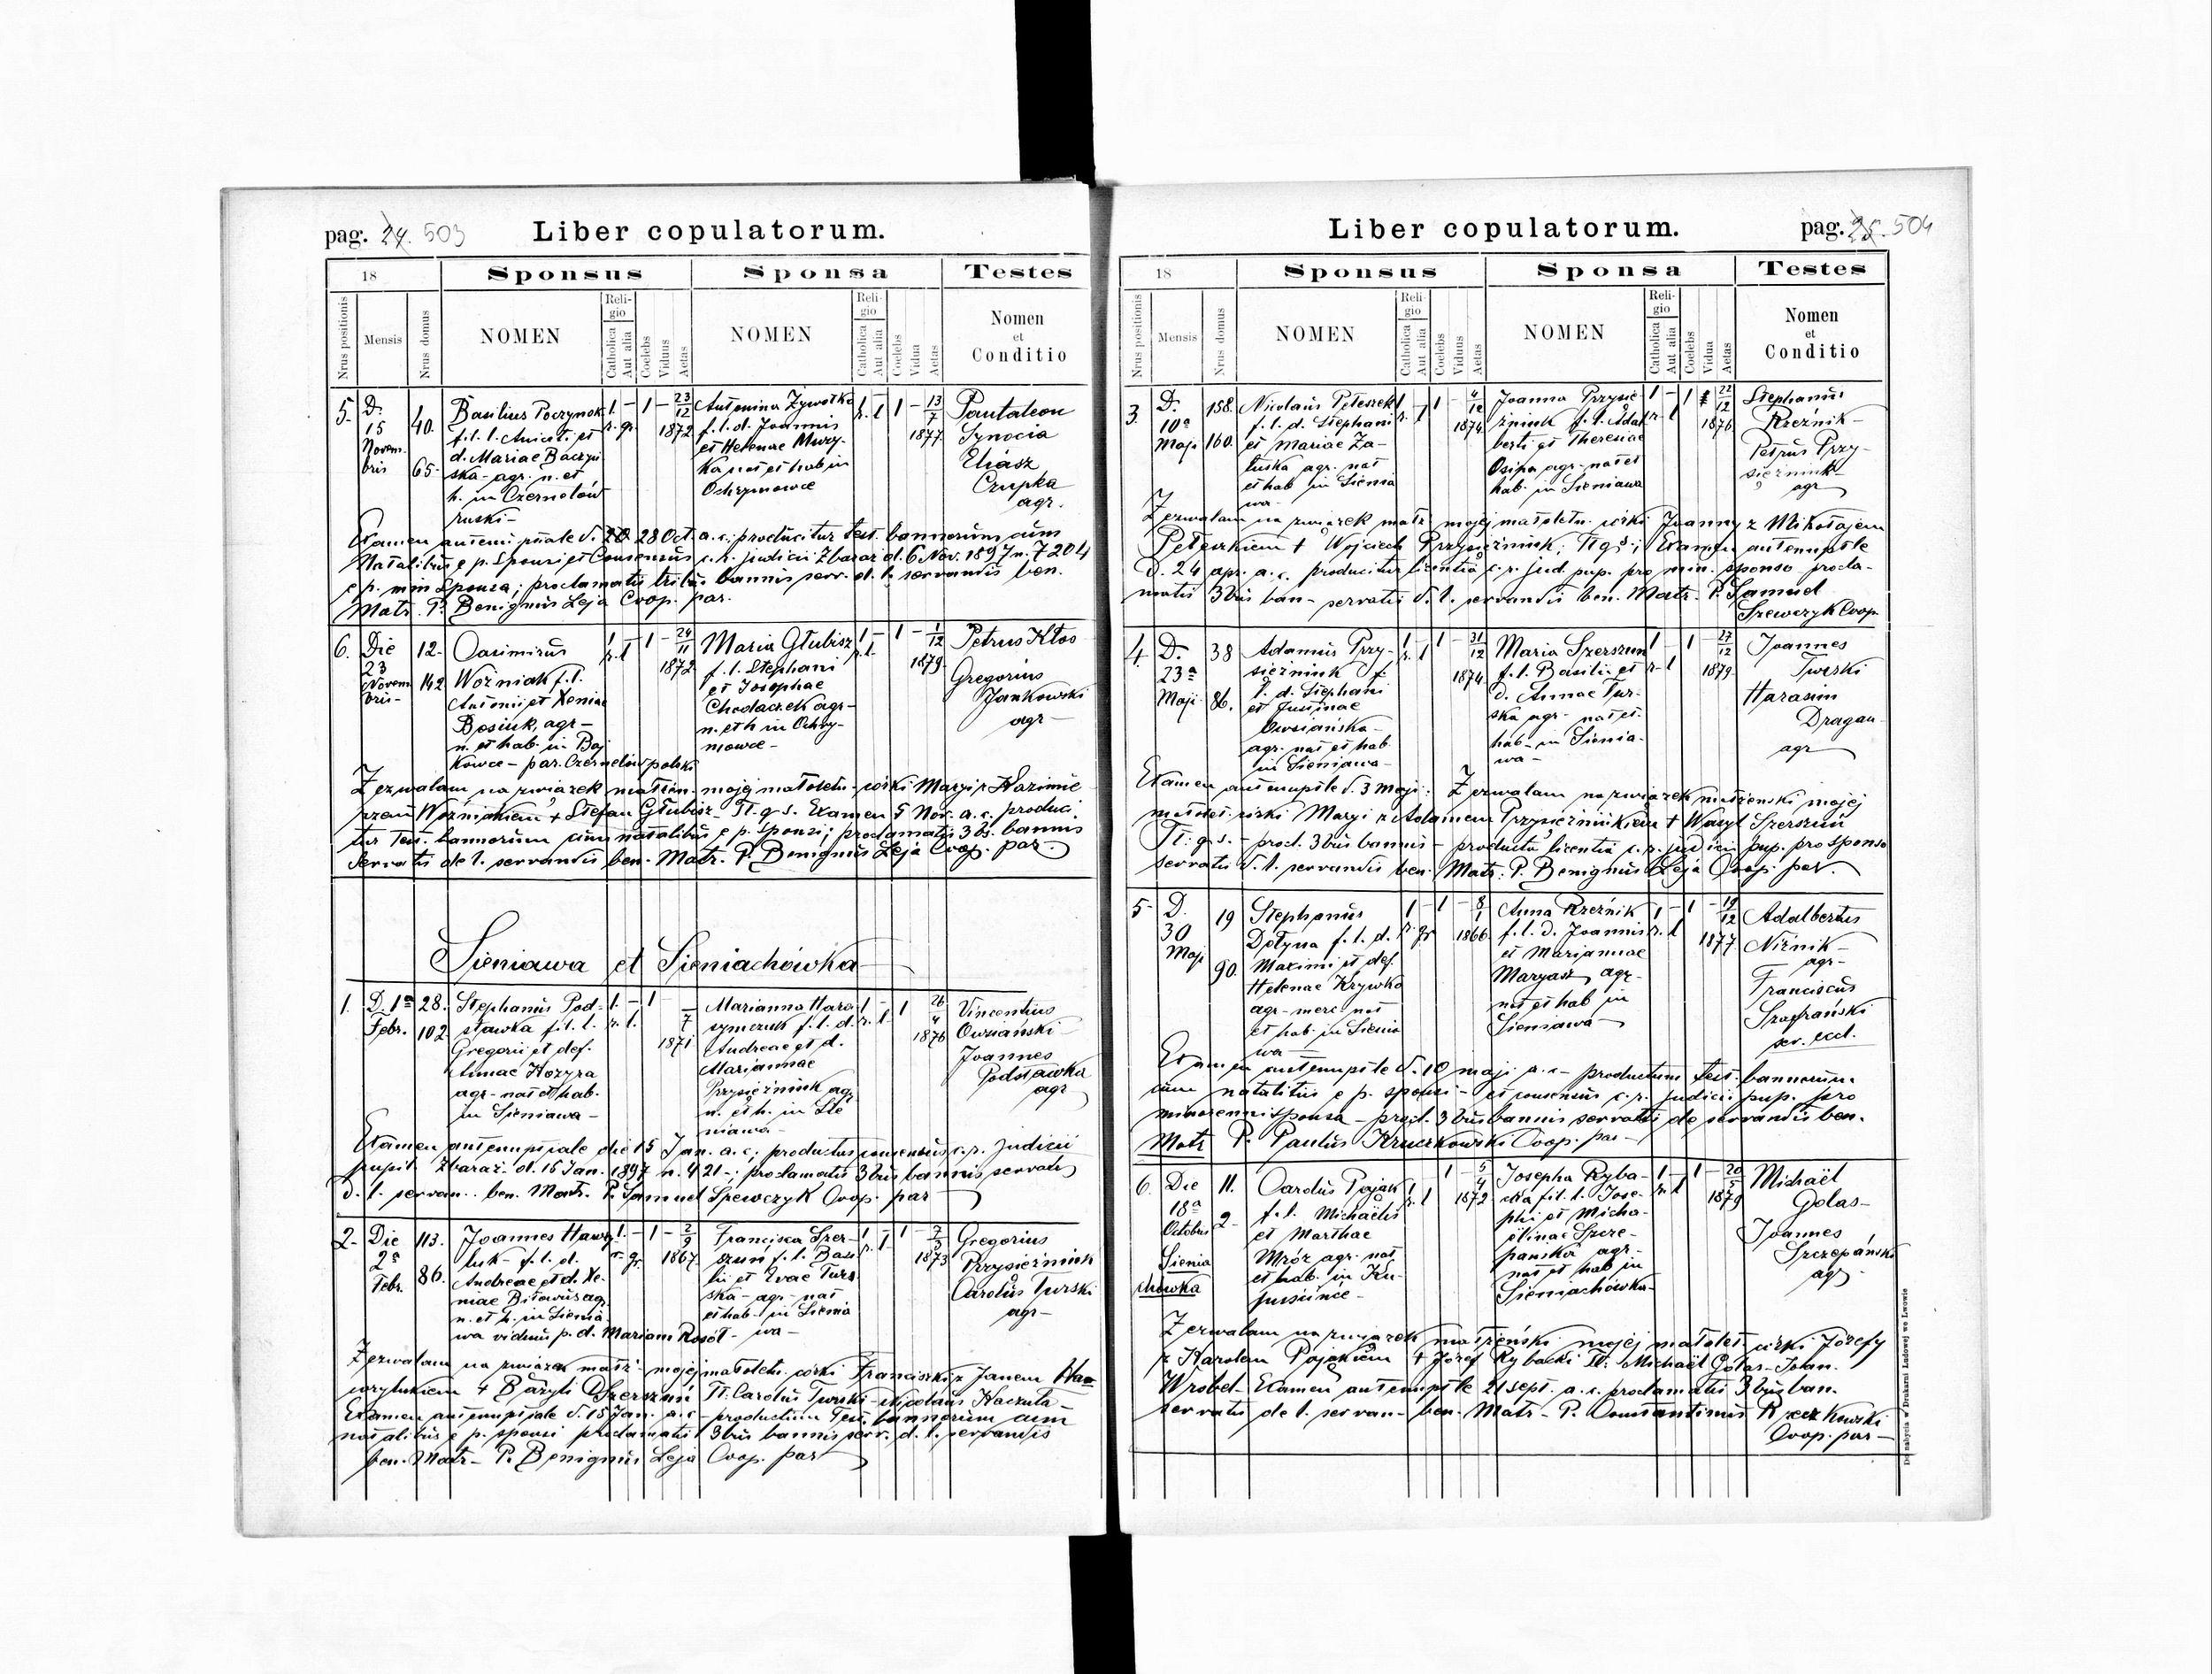 pag. 24. 503
Liber copulatorum.
18
Sponsus
Sponsa
Testes
Nrus positionis
Mensis
Nrus domus
NOMEN
Religio
Catholica
Aut alia
Coelebs
Viduus
Aetas
NOMEN
Religio
Catholica
Aut alia
Coelebs
Vidua
Aetas
Nomen
et
Conditio
5. D. 15 Novembris 40. 65.
Basilius Poczynok
f. l. l. Anicet. et
d. Mariae Baczyń
ska - agr. n. et
h. in Czernelów
ruski -
1. r. gr. - 1 - 23/12 1872
Antonina Żywotko
f. l. d. Joannis
et Helenae Mury-
ka nat et hab in
Ochrymowce
1 r. l. - 1 - 13/7 1877.
Pantaleon
Synocia
Eliasz
Czupka
agr.
Examen antenuptiale d. 20. 28 Oct. a. c. producitur test. bannorum cum
Natalibus e p. Sponsi et Consensus c. k. judicii Zbaraż d. 6 Nov. 1897 n. 7204
e p. min Sponsa; proclamatis tribus bannis serv. d. l. servandis ben.
Matr. P. Benignus Leja Coop. par.
6. Die 23 Novembris - 12. 142
Casimirus
Woźniak f. l.
Antonii et Xeniae
Bosiuk, agr -
n. et hab. in Boj
kowce - par. Czernelów polski
1 r. l - 1 - 24/11 1872
Maria Głubisz
f. l. Stephani
et Josephae
Chodaczek agr -
n. et h in Ochry-
mowce -
1 r. l. - 1 - 1/12 1879.
Petrus Kłos
Gregorius
Jankowski
agr -
Zezwalam na związek małżen. mojej małoletn. córki Maryi z Kazimie
rzem Woźniakiem + Stefan Głubisz - Tt. q. s. Examen 5 Nov. a. c. produci
tur Test. bannorum cum natalibus e p. Sponsi; proclamatis 3 bs. bannis
servatis de l. servandis ben. Matr. P. Benignus Leja Coop. par.
Sieniawa et Sieniachówka
1. D. 1a Febr. 28. 102
Stephanus Pod-
stawka fil. l.
Gregorii et def.
Annae Kozyra
agr - nat et hab.
in Sieniawa -
1. r. l. - 1 - 7 1871
Marianna Hara
symczuk f. l. d.
Andreae et d.
Mariannae
Przysiężniuk agr
n. et h. in Sie
niawa -
1 r. l. - 1 26/4 1876
Vincentius
Owsiański
Joannes
Podstawka
agr
Examen antenuptiale die 15 Jan. a. c; productus consensus c. r. judicii
pupil. Zbaraż d. 16 Jan. 1897 n. 421 -; proclamatis 3 bus bannis servatis
d. l. servan.. ben. Matr. P. Samuel Szewczyk Coop. par
2. Die 2a Febr. 113. 86.
Joannes Hawry
luk - f. l. d.
Andreae et d. Xe-
niae Biławus agr
n. et h. in Sienia
wa viduus p. d. Mariam Rosół -
1. r. gr. - 1 - 2/9 1867.
Francisca Szer-
szuń f. l. Basi
lii et Evae Turs
ska - agr - nat
et hab - in Sienia
wa -
1 r. l - 1 - 7/3 1873
Gregorius
Przysiężniuk
Carolus Turski
agr -
Zezwalam na związek małż. mojej małoletn. córki Franciszki z Janem Haw
wrylukiem + Bazyli Szerszuń Tt. Carolus Turski - Nicolaus Kaczuła -
Examen antenuptiale d. 15 Jan. a. c - productum Test. bannorum cum
natalibus e p. sponsi proclamatis 3 bus bannis serv. d. l. servandis
ben. Matr - P. Benignus Leja Coop. par
Liber copulatorum.
pag. 25. 504
18
Sponsus
Sponsa
Testes
Nrus positionis
Mensis
Nrus domus
NOMEN
Religio
Catholica
Aut alia
Coelebs
Viduus
Aetas
NOMEN
Religio
Catholica
Aut alia
Coelebs
Vidua
Aetas
Nomen
et
Conditio
3. D. 10a Maji 158. 160.
Nicolaus Peteszek
f. l. d. Stephani
et Mariae Za-
łuska agr. nat
et hab in Sienia
wa -
1 r. l - 1 - 4/12 1874.
Joanna Przysię
żniuk f. l. Adal
berti et Theresiae
Osipa agr - nat et
hab in Sieniawa
1 r. l - 1 22/12 1876
Stephanus
Rzeźnik -
Petrus Przy-
siężniuk -
agr
Zezwalam na związek małż. mojej małoletn. córki Joanny z Mikołajem
Peteszkiem + Wojciech Przysiężniuk; Tt q s; Examen antenuptle
d. 24 apr. a. c. producitur licentia c. r. jud. pup. pro min. sponso - procla-
matis 3 bus ban - servatis d. l. servandis ben. Matr. P. Samuel
Szewczyk Coop
4. D. 23a Maji 38 86.
Adamus Przy-
siężniuk f.
l. d. Stephani
et Justinae
Owsiańska -
agr. nat et hab
in Sieniawa -
1 r. l - 1 - 31/12 1874.
Maria Szerszuń
f. l. Basilii et
d. Annae Tur-
ska agr - nat et
hab - in Sienia-
wa -
1 r - l - 1 - 27/12 1879.
Joannes
Turski
Harasim
Dragan -
agr
Examen antenuptle d. 3 Maji. Zezwalam na związek małżenski mojej
małolet. córki Maryi z Adamem Przysiężniukiem + Wasyl Szerszuń
Tt: q. s. - procl. 3 bus bannis - producta licentia c. r. judicii pup. pro sponso
servatis d. l. servandis ben. Matr: P. Benignus Leja Coop. par.
5 - D. 30 Maji 19 90.
Stephanus
Dołyna f. l. d.
Maximi et def.
Helenae Krywko
agr - merc nat
et hab. in Sienia
wa -
1 r. gr - 1 - 8/1 1866.
Anna Rzeźnik
f. l. d. Joannis
et Mariannae
Maryasz agr -
nat et hab in
Sieniawa -
1 r. l - 1 - 19/12 1877
Adalbertus
Niżnik -
agr -
Franciscus
Szafrański
ser. eccl.
Examen antenuptle d. 10 maji a. c - productum test. bannorum
cum natalitiis e p. sponsi - et consensus c. r. judicii pup. pro
minorenni sponsa - procl. 3 bus bannis servatis de servandis ben.
Matr P. Paulus Kruczkowski Coop. par -
6. Die 18a Octobris Sieniachówka 11. 2 -
Carolus Pająk
f. l. Michaëlis
et Marthae
Mróz agr - nat
et hab. in Ku-
puścince -
1 r. l 1 - 5/4 1872
Josepha Ryba-
cka fil. l. Jose-
phi et Micha-
ëlinae Szcze-
pańska agr -
nat et hab in
Sieniachówka -
1 r. l - 1 - 20/5 1879
Michaël
Gołas -
Joannes
Szczepański
agr
Zezwalam na związek małżeński mojej małolet. córki Józefy
z Karolem Pająkiem + Józef Rybacki Tt. Michaël Gołas - Joan.
Wróbel - Examen antenuptle 21 sept. a. c. proclamatis 3 bus ban.
servatis de l. servan - ben. Matr - P. Constantinus Rzeczkowski
Coop. par -
Do nabycia w Drukarni Ludowej we Lwowie